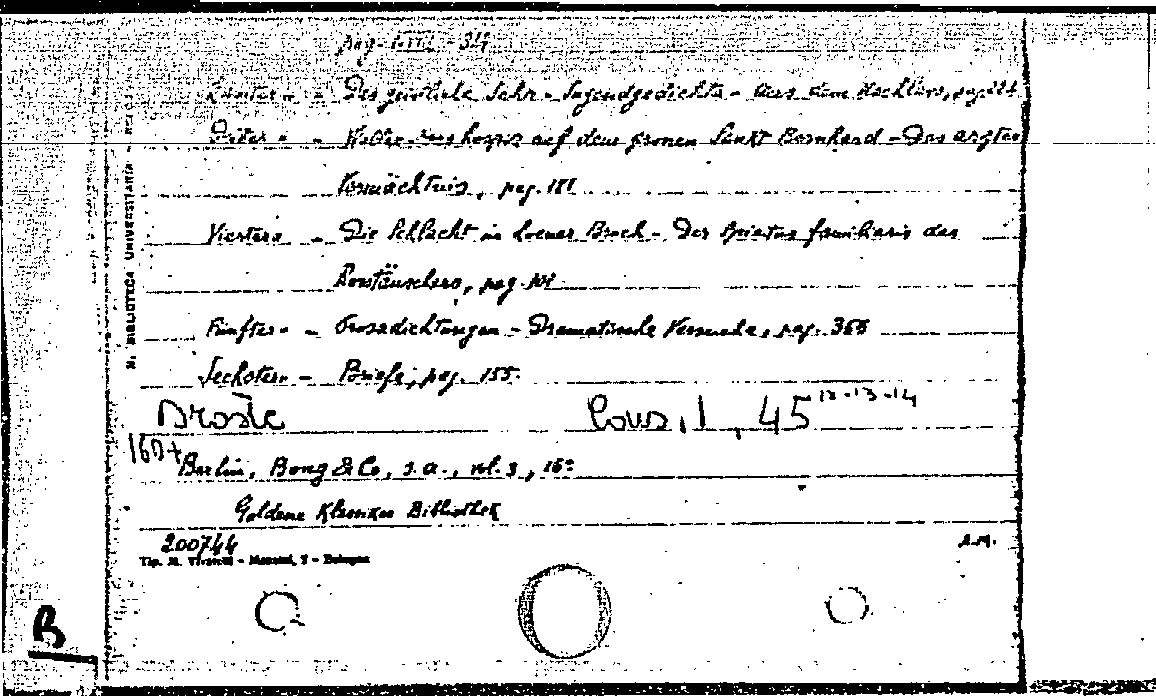 pag. - 34
Zweiter - - Das geistliche Jahr - Jugendgedichte - Aus dem Nachlass, pag. 224
Dritter - - Hospiz auf dem grossen Sankt Bernhard - Des Arztes
Vermächtnis, pag. 181
Vierter - Die Schlacht im Loener Bruch - Der Spiritus familiaris des
Rosstäuschers, pag. 101
Fünfter - - Prosadichtungen - Dramatische Versuche, pag. 366
Sechster - - Briefe, pag. 155.
Droste Cons. I, 45 12-13-14
Berlin, Bong & Co, s.a., vol. 3, 16°
Goldene Klassiker Bibliothek
200744 A.M.
Tip. M. - Mascarella, 7 - Bologna
N. BIBLIOTECA UNIVERSITARIA
B